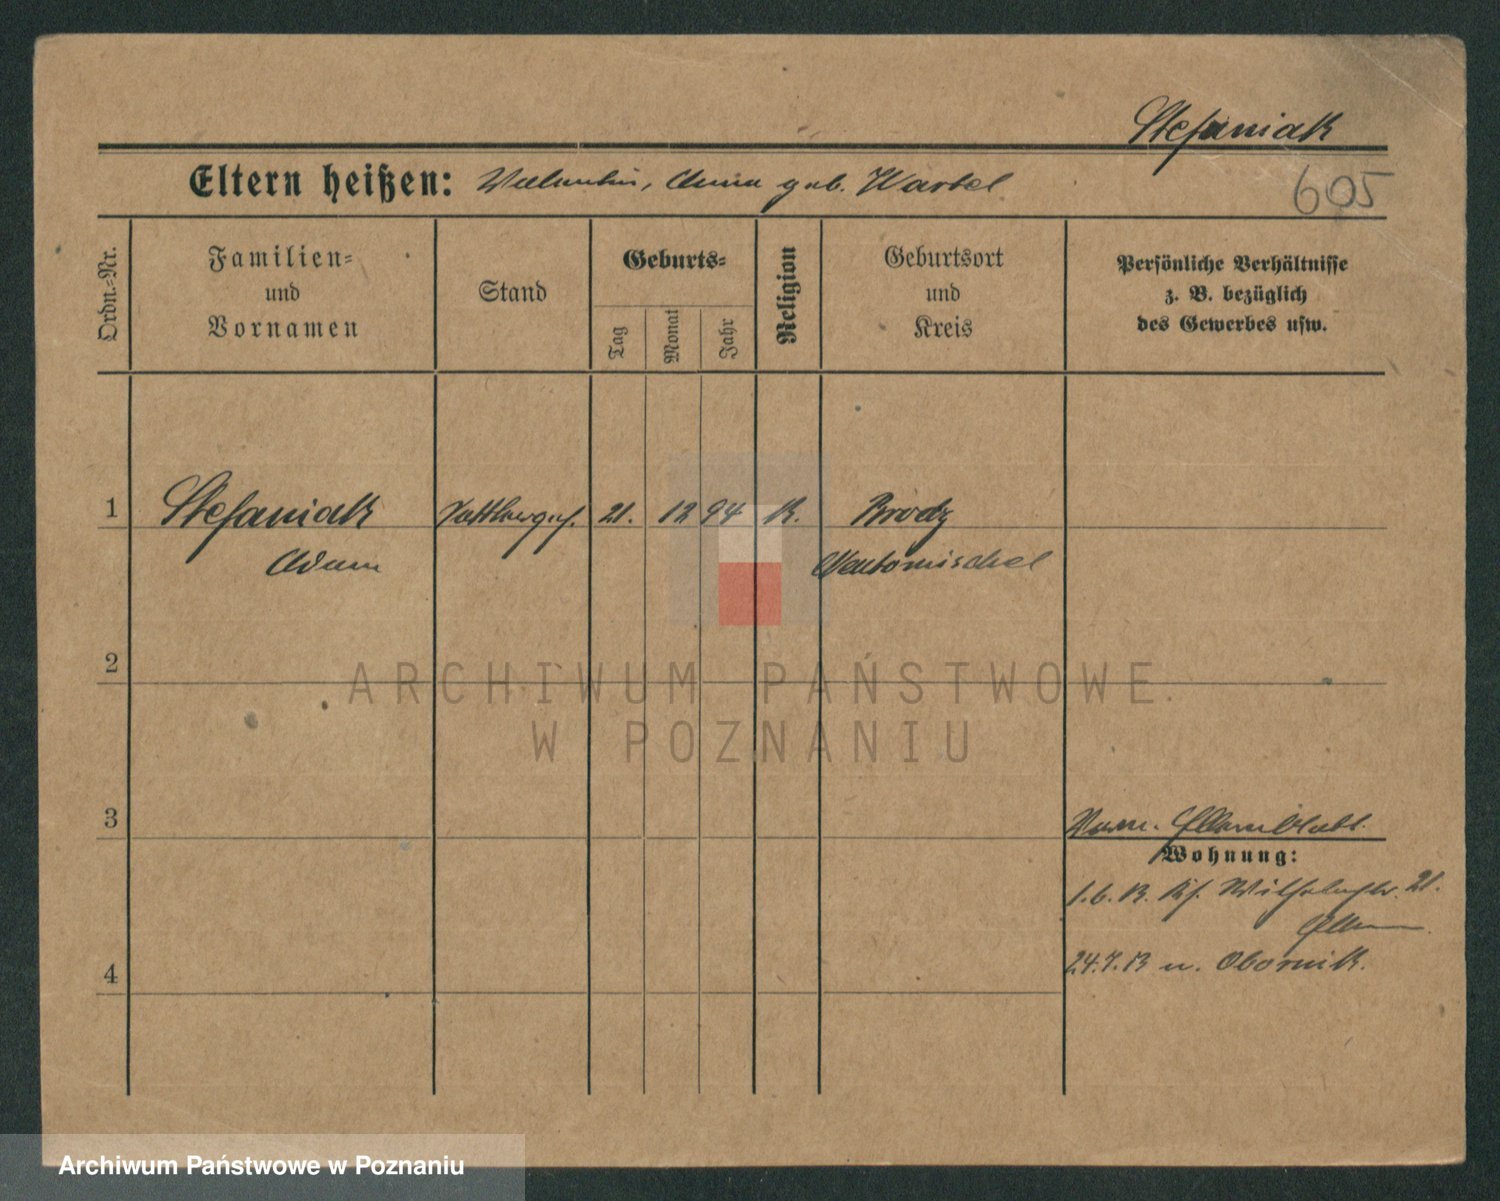 Stefaniak
Eltern heißen: Valentin, Anna geb. Wartel
605
Ordn.-Nr.
Familien-
und
Vornamen
Stand
Geburts-
Tag
Monat
Jahr
Religion
Geburtsort
und
Kreis
Persönliche Verhältnisse
z. B. bezüglich
des Gewerbes usw.
1 Stefaniak Sattlergs. 21. 12 94 K. Brody
Adam Neutomischel
2
ARCHIWUM PAŃSTWOWE
W POZNANIU
3
Wohnung:
1.6.13. 21.
24.7.13 n. Obornik.
4
Archiwum Państwowe w Poznaniu